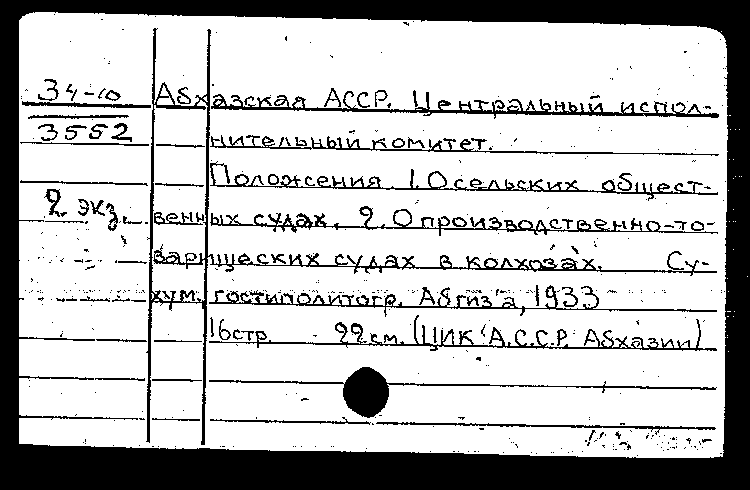 34-10
3552
2 экз.
Абхазская АССР. Центральный испол-
нительный комитет.
Положения 1. О сельских общест-
венных судах. 2. О производственно-то-
варищеских судах в колхозах. Су-
хум, гостиполитогр. Абгиз'а, 1933
16стр. 22см. (ЦИК А.С.С.Р. Абхазии)